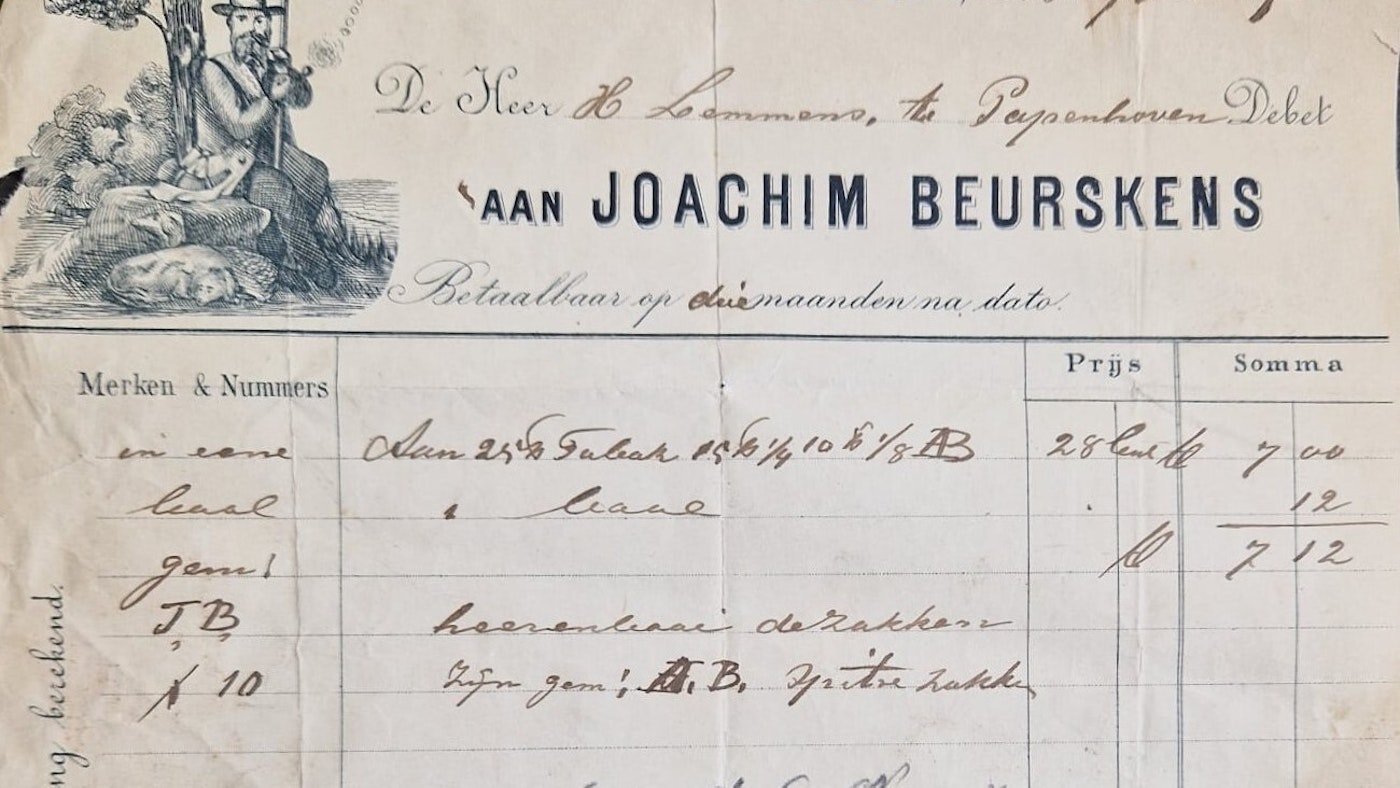 De Heer H Lemmens, te Papenhoven Debet
AAN JOACHIM BEURSKENS
Betaalbaar op drie maanden na dato.
Merken & Nummers
Prijs
Somma
in eene Aan 25 Tabak 15 1/4 10 1/8 AB 28 Cent 7 00
baal " baal 12
7 12
gem:
J, B, heerenbaai de zakken
10 Zijn gem: A. B. spitse zakken
ng berekend.